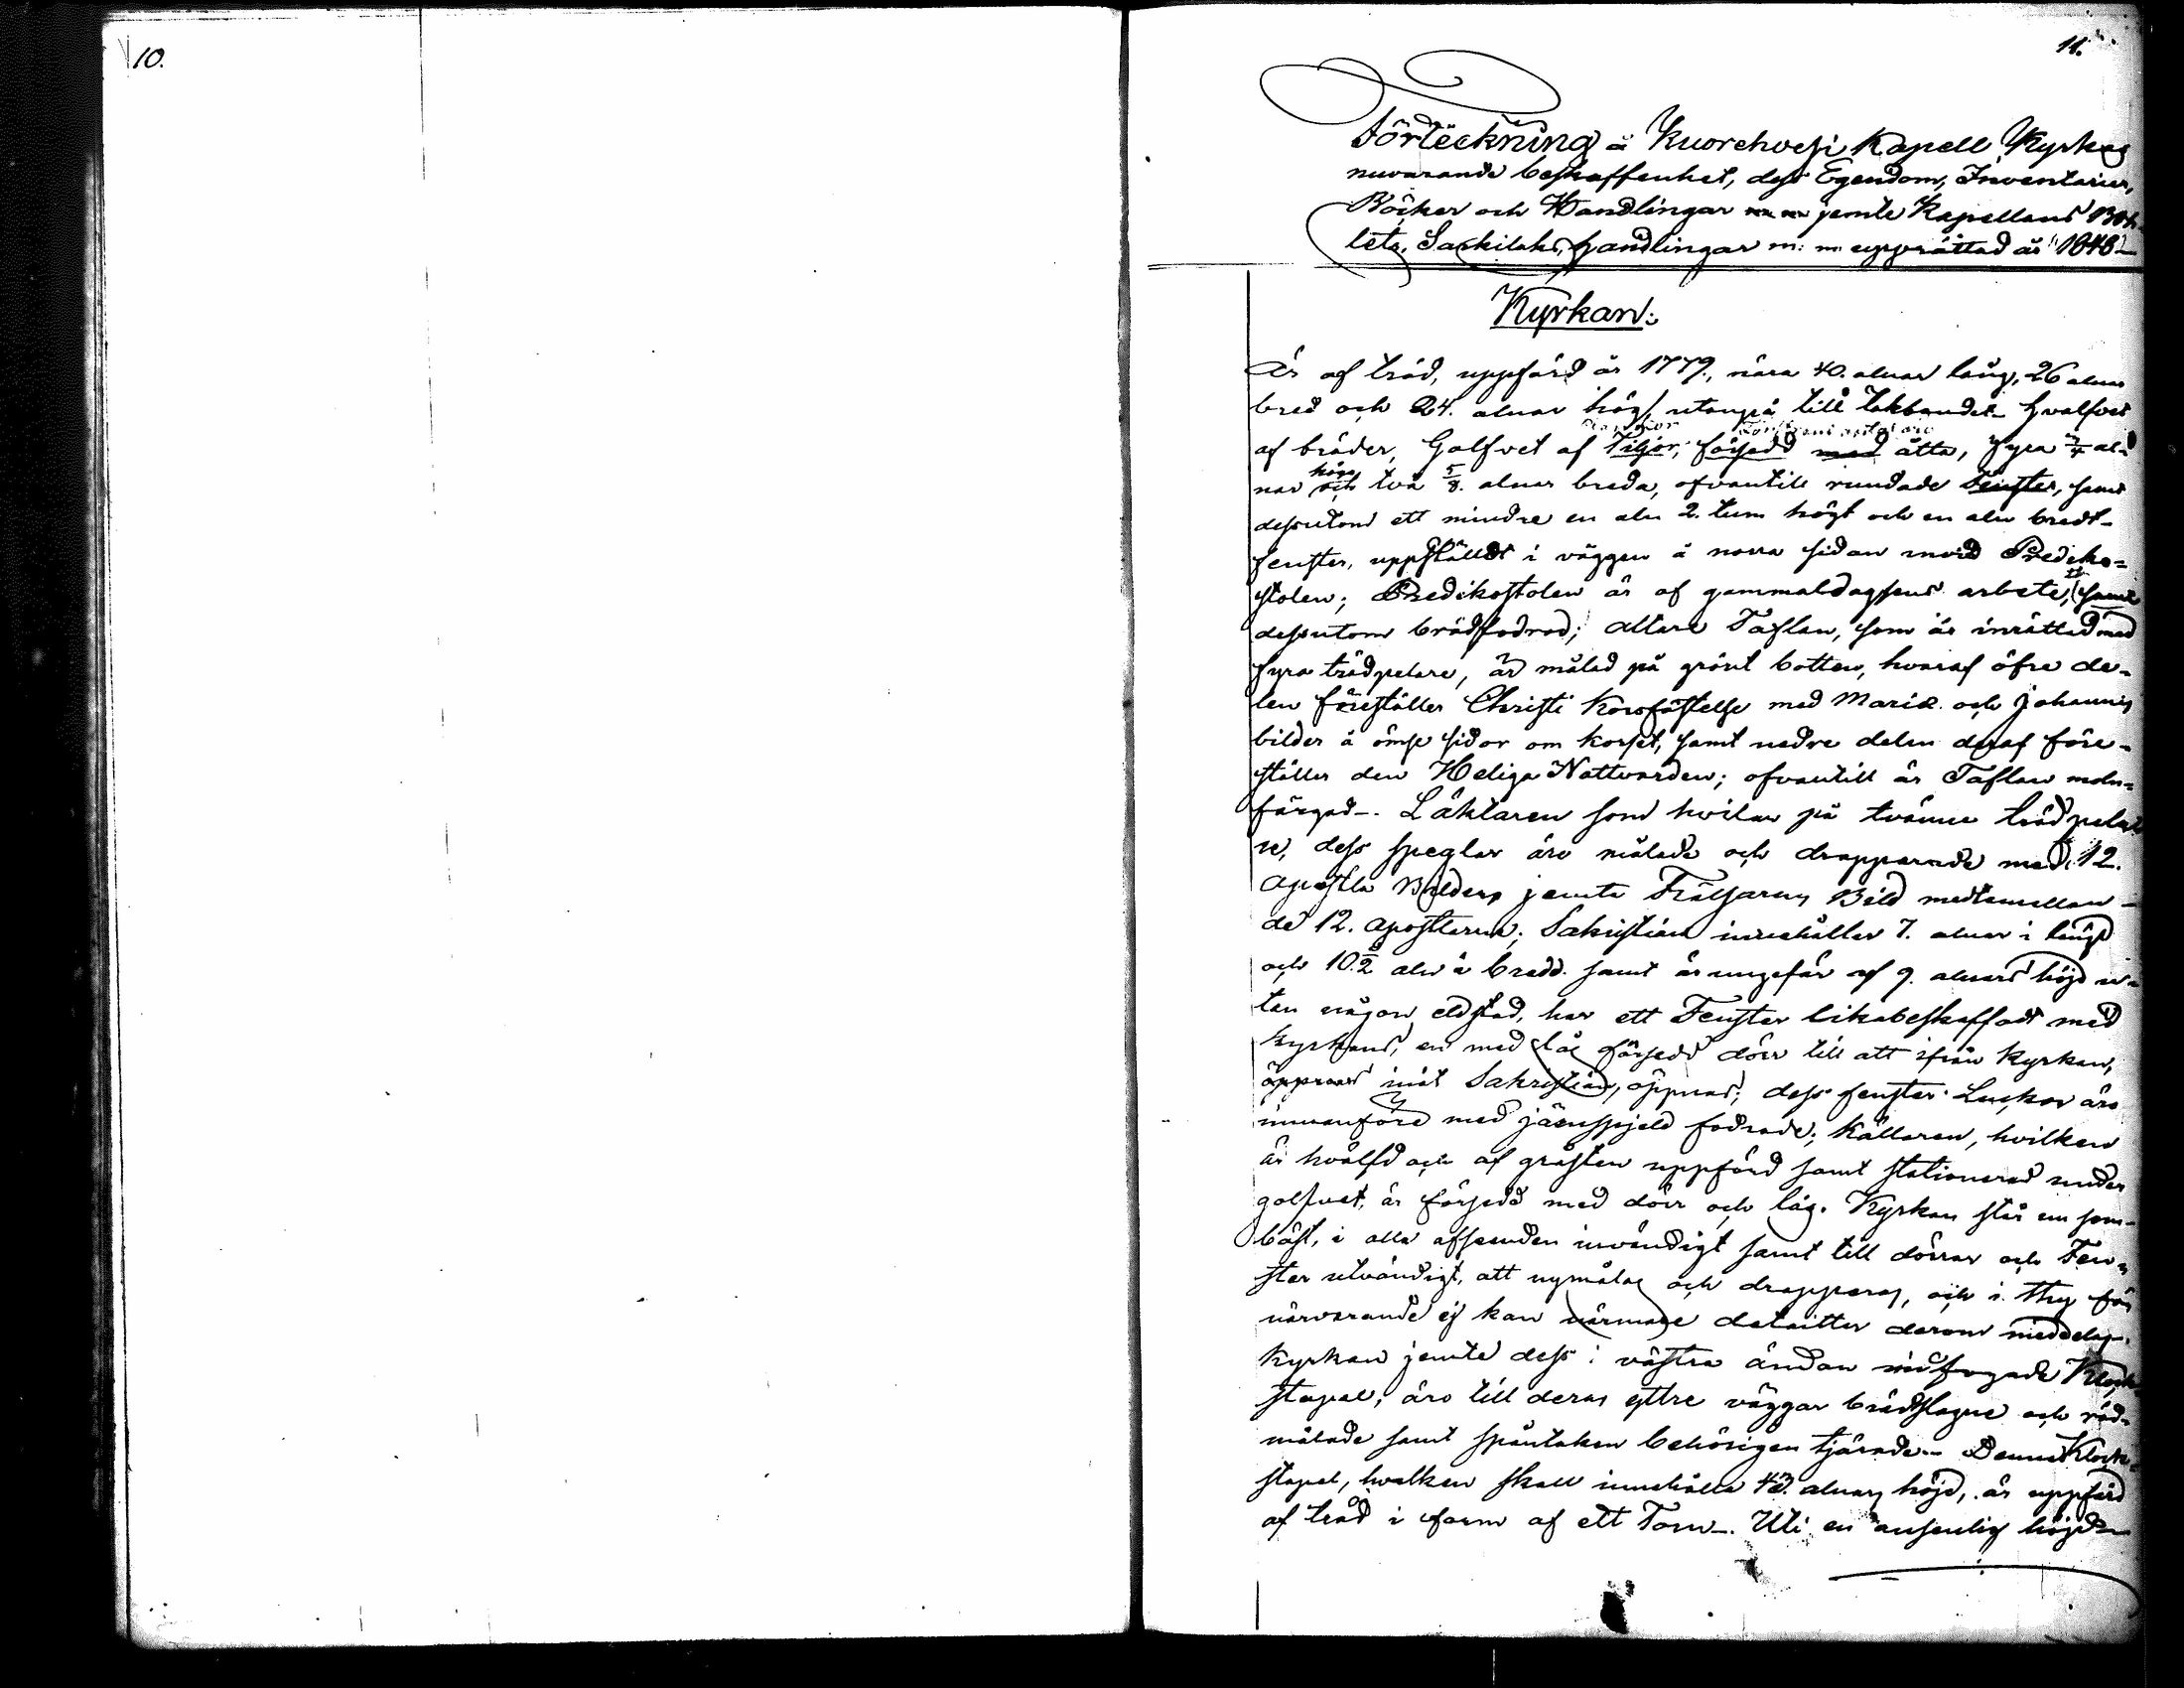 10.
11.
Förteckning å Kuorehvesi Kapell Kyrkas
nuvarande beskaffenhet, dess Egendom, Inventarier,
Böcker och Handlingar jemte Kapellans Bol-
lets, handlingar m: m upprättad år 1848
Kyrkan:
Är af träd, uppförd år 1779, nära 40. alnar lång, 26 alnar
bred och 24. alnar hög, utanpå till takbandet. Hvalfvet
af bräder, Golfvet af Tiljor, försedd med åtta, fyra al-
nar höga och två 5/8. alnar breda, ofvantill rundade fenster, samt
dessutom ett mindre en aln 2. tum högt och en aln bredt
fenster, uppstäldt i väggen å norra sidan invid Prediko-
stolen; Predikostolen är af gammaldagsens arbete, samt
dessutom brädfodrad; Altare Taflan, som är inrättad med
fyra trädpelare, är målad på grönt botten, hvaraf öfre de-
len föreställer Christi Korsfästelse med Mariæ och Johannis
bilder å ömse sidor om korset, samt nedre delen deraf före-
ställer den Heliga Nattvarden; ofvantill är Taflan moln-
färgad. Läktaren som hvilar på tvänne trädpela-
re, dess speglar äro målade och drapperade med 12.
Apostla Bilder jemte Frälsarens Bild medtemellan
de 12. Apostlarna; Sakristian innehåller 7. alnar i längd
och 10.½ aln å bredd. samt är ungefär af 9. alnars höjd u-
tan någon eldstad, har ett Fenster likabeskaffadt med
kyrkans, en med lås försedd dörr till att ifrån kyrkan,
öppnas inåt Sakristian, öppnas; dess fenster Luckor äro
innanföre med järnspjeld fodrade; Källaren, hvilken
är hvälfd och af gråsten uppförd samt stationerad under
golfvet, är försedd med dörr och lås. Kyrkan står nu som
bäst, i alla afseenden invändigt samt till dörrar och Fen-
ster utvändigt, att nymålas och drapperas, och i thy för
närvarande ej kan närmare detailler derom meddelas.
Kyrkan jemte dess i västra ändan infogade Klock-
stapel, äro till deras yttre väggar brädslagne och röd-
målade samt spåntaken behörigen tjärade. Denna Klock-
stapel, hvilken skall innehålla 43. alnars höjd, är uppförd
af träd i form af ett Torn. Uti en ansenlig höjd